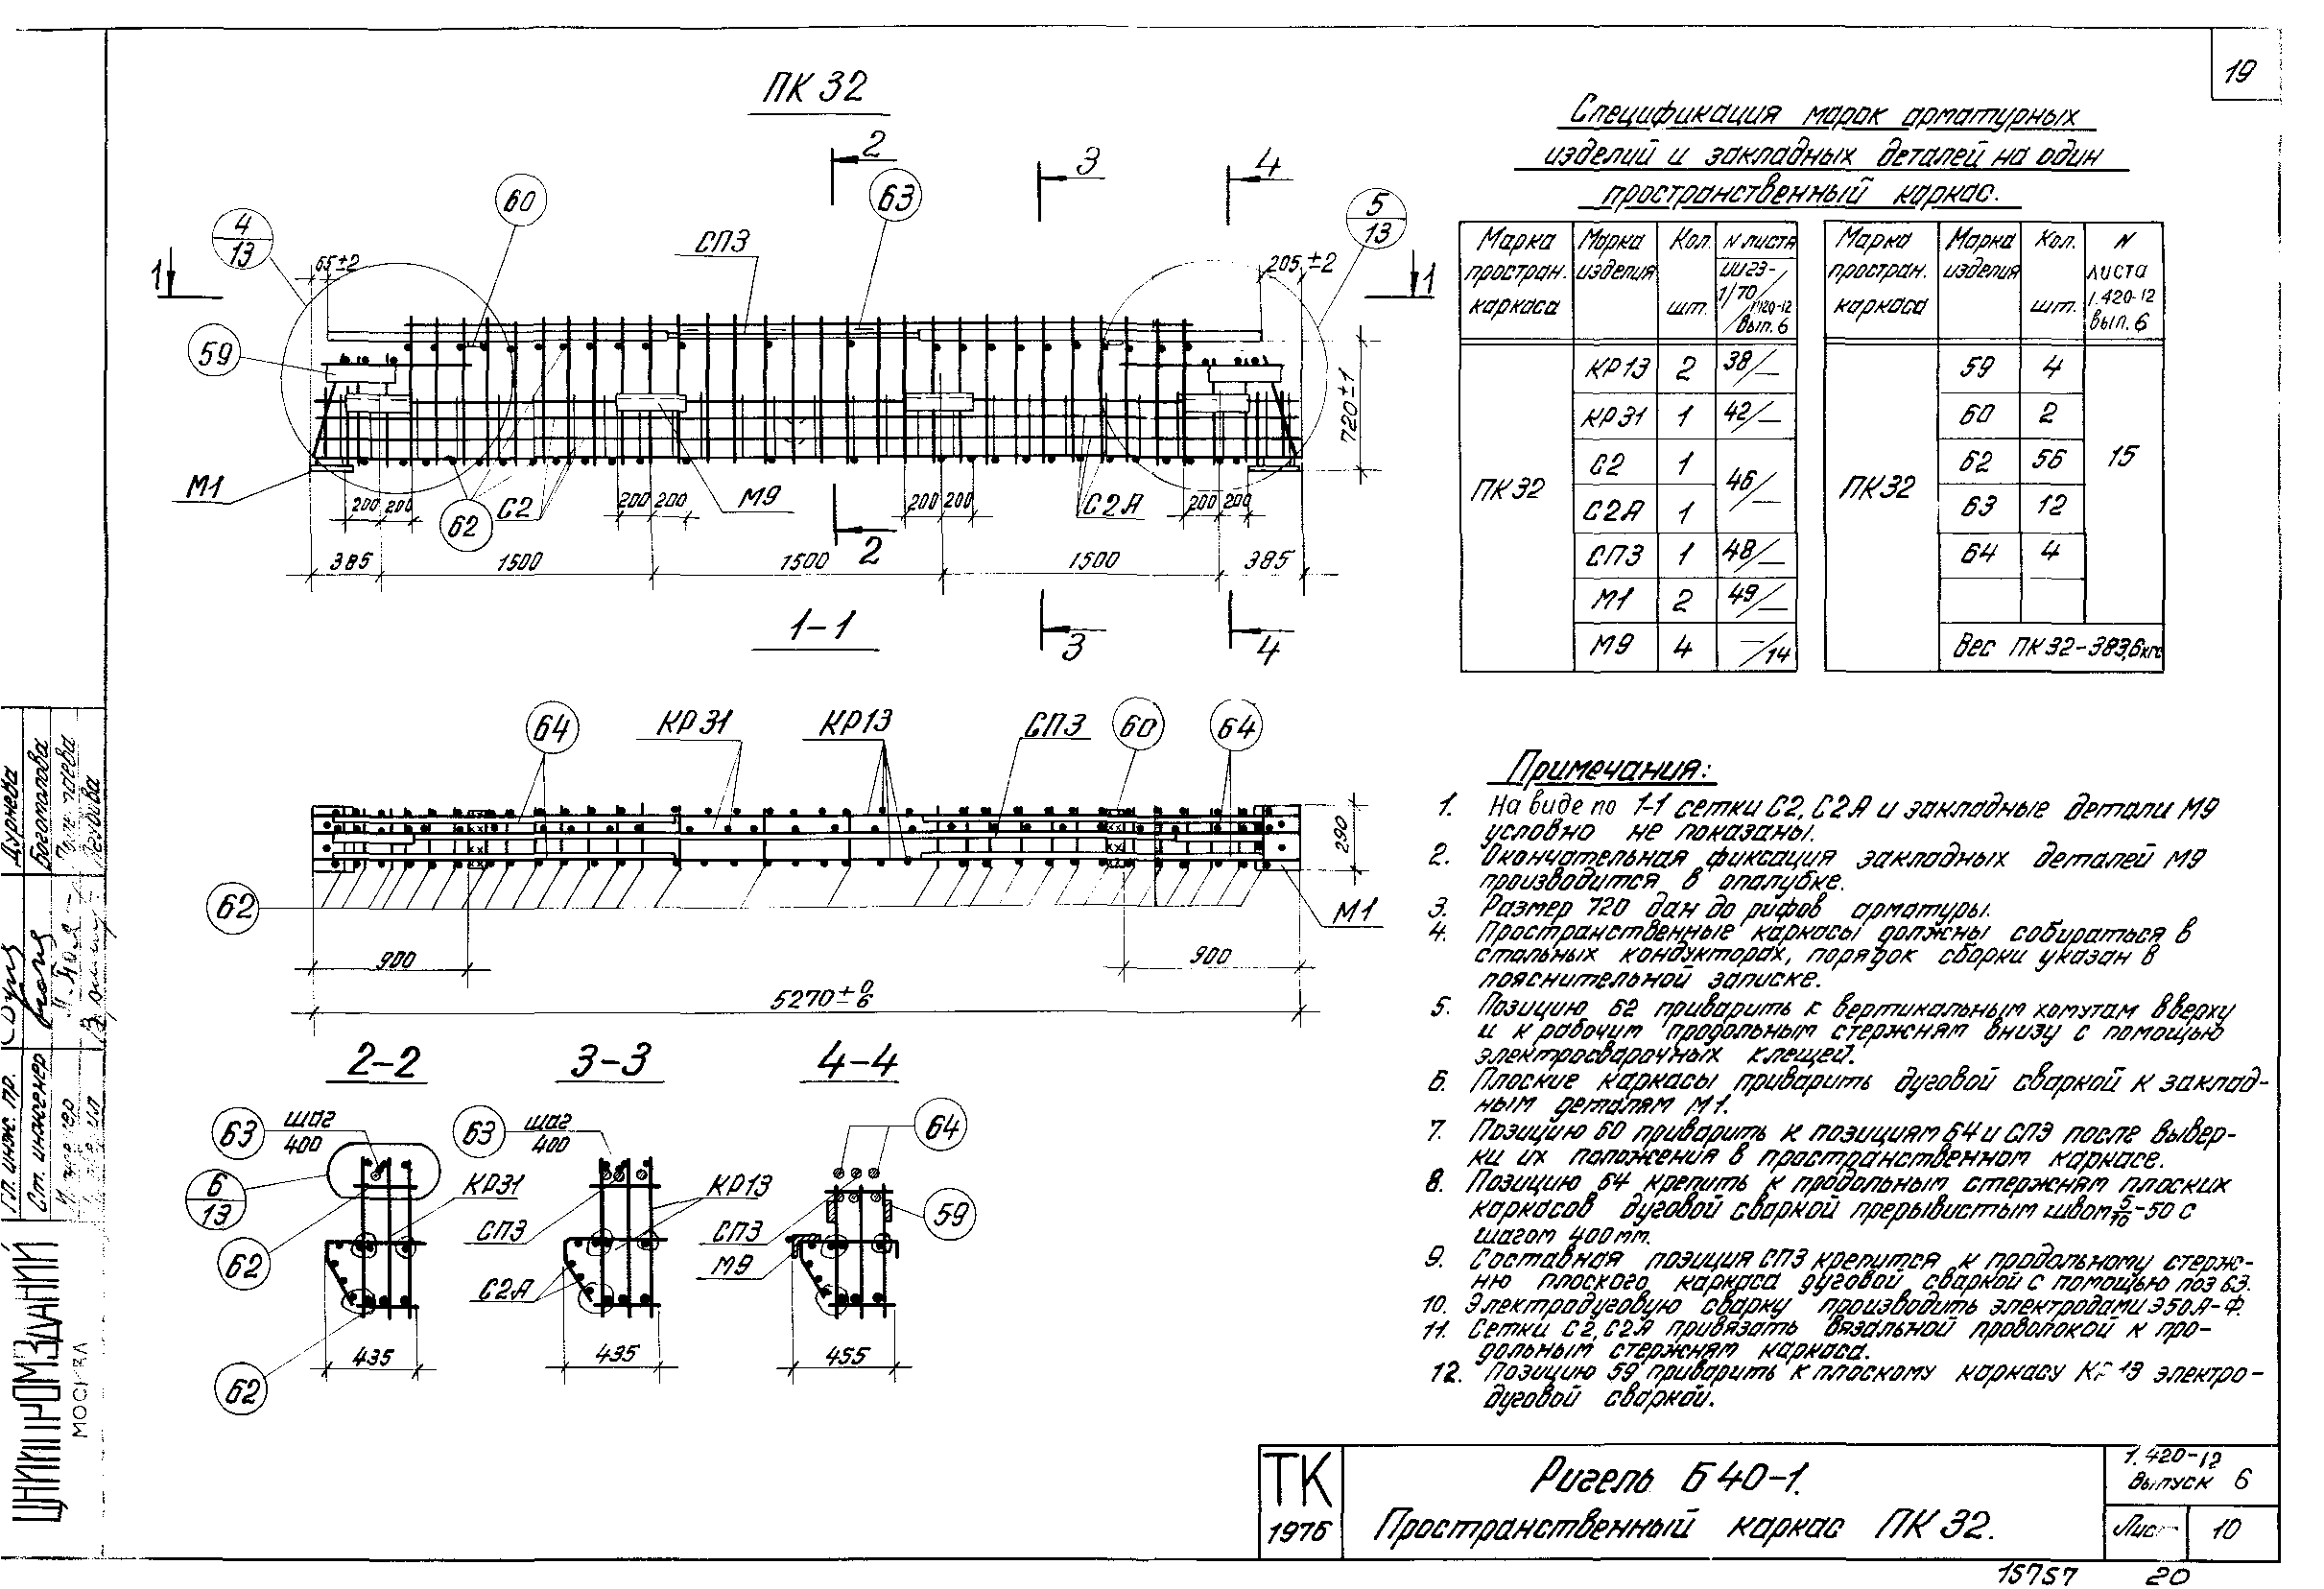 19
ПК 32
2
3
4
60
63
4/13
5/13
СП3
65±2
205 ±2
1
1
59
720±1
М1
62
С2
М9
С2А
200 200
200 200
200 200
200 200
2
385
1500
1500
1500
385
3
4
1-1
64
КР31
КР13
СП3
60
64
290
62
М1
900
900
5270±0/6
2-2
3-3
4-4
63
шаг
400
63
шаг
400
64
6/13
КР31
КР13
59
СП3
СП3
М9
62
С2А
62
435
435
455
Спецификация марок арматурных
изделий и закладных деталей на один
пространственный каркас.
Марка простран. каркаса
Марка изделия
Кол. шт.
N листа ИИ23-1/70 / 1.420-12 вып. 6
ПК32
КР13 2 38/—
КР31 1 42/—
С2 1 46/—
С2А 1
СП3 1 48/—
М1 2 49/—
М9 4 —/14
Марка простран. каркаса
Марка изделия
Кол. шт.
N листа 1.420-12 вып. 6
ПК32
59 4
60 2
62 56 15
63 12
64 4
Вес ПК32-383,6кгс
Примечания:
1. На виде по 1-1 сетки С2, С2А и закладные детали М9
условно не показаны.
2. Окончательная фиксация закладных деталей М9
производится в опалубке.
3. Размер 720 дан до рифов арматуры.
4. Пространственные каркасы должны собираться в
стальных кондукторах, порядок сборки указан в
пояснительной записке.
5. Позицию 62 приварить к вертикальным хомутам вверху
и к рабочим продольным стержням внизу с помощью
электросварочных клещей.
6. Плоские каркасы приварить дуговой сваркой к заклад-
ным деталям М1.
7. Позицию 60 приварить к позициям 64 и СП3 после вывер-
ки их положения в пространственном каркасе.
8. Позицию 64 крепить к продольным стержням плоских
каркасов дуговой сваркой прерывистым швом 5/10-50 с
шагом 400мм.
9. Составная позиция СП3 крепится к продольному стерж-
ню плоского каркаса дуговой сваркой с помощью поз 63.
10. Электродуговую сварку производить электродами Э50А-Ф.
11. Сетки С2, С2А привязать вязальной проволокой к про-
дольным стержням каркаса.
12. Позицию 59 приварить к плоскому каркасу КР13 электро-
дуговой сваркой.
ТК
1976
Ригель Б40-1.
Пространственный каркас ПК 32.
1.420-12
Выпуск 6
Лист 10
15757 20
Гл. инж. пр.
Дурнева
Ст. инженер
Богаталова
ЦНИИПРОМЗДАНИЙ
МОСКВА